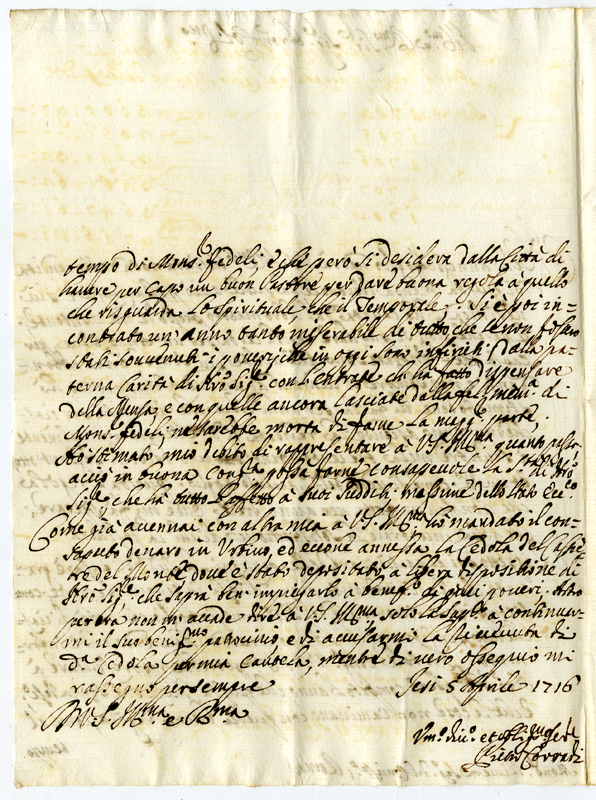 tempo di Mons.e Fedeli; e che però si desidera dalla Città di
havere per capo un buon Pastore per dare buona regola à quello
che risguarda lo Spirituale, che il Temporale. Si è poi in-
contrato un'anno tanto miserabile de tutto, che se non fossero
stati souvenuti i poveri, che in oggi sono infiniti, dalla pa-
terna Carità di Nro Sig.e con l'entrate ch'ha fatto dispensare
della Mensa, e con quelle ancora lasciate dalla fel. mem.a di
Mons.e Fedeli, ne sarebbe morta di fame la magg.r parte;
Hò stimato mio debito di rappresentare à V.S. Ill.ma quanto passa,
acciò in buona cong.a possa farne consapevole la S.tà di Nro
Sig.e, che hà tutto l'affetto à suoi sudditi, massime dello Stato Ecc.o
Come già accennai con altra mia à V.S. Ill.ma, hò mandato il con-
saputo denaro in Urbino, ed eccone annessa la Cedola del Cassie-
re del Monte, dove è stato depositato à libera dispositione di
Nro Sig.e, che saprà ben impiegarlo à benef.o di quei poveri. Altro
per hora non mi accade dire à V.S. Ill.ma, se no la supp.o à continuar-
mi il suo benig.mo patrocinio, e di accusarmi la ricevuta di
d.a Cedola per mia cautela, mentre di vero ossequio mi
rassegno per sempre Jesi 5 Aprile 1716
Di V.S. Ill.ma e R.ma
Um.o div.o et obblig.mo Ser.e
Pietro Corradi